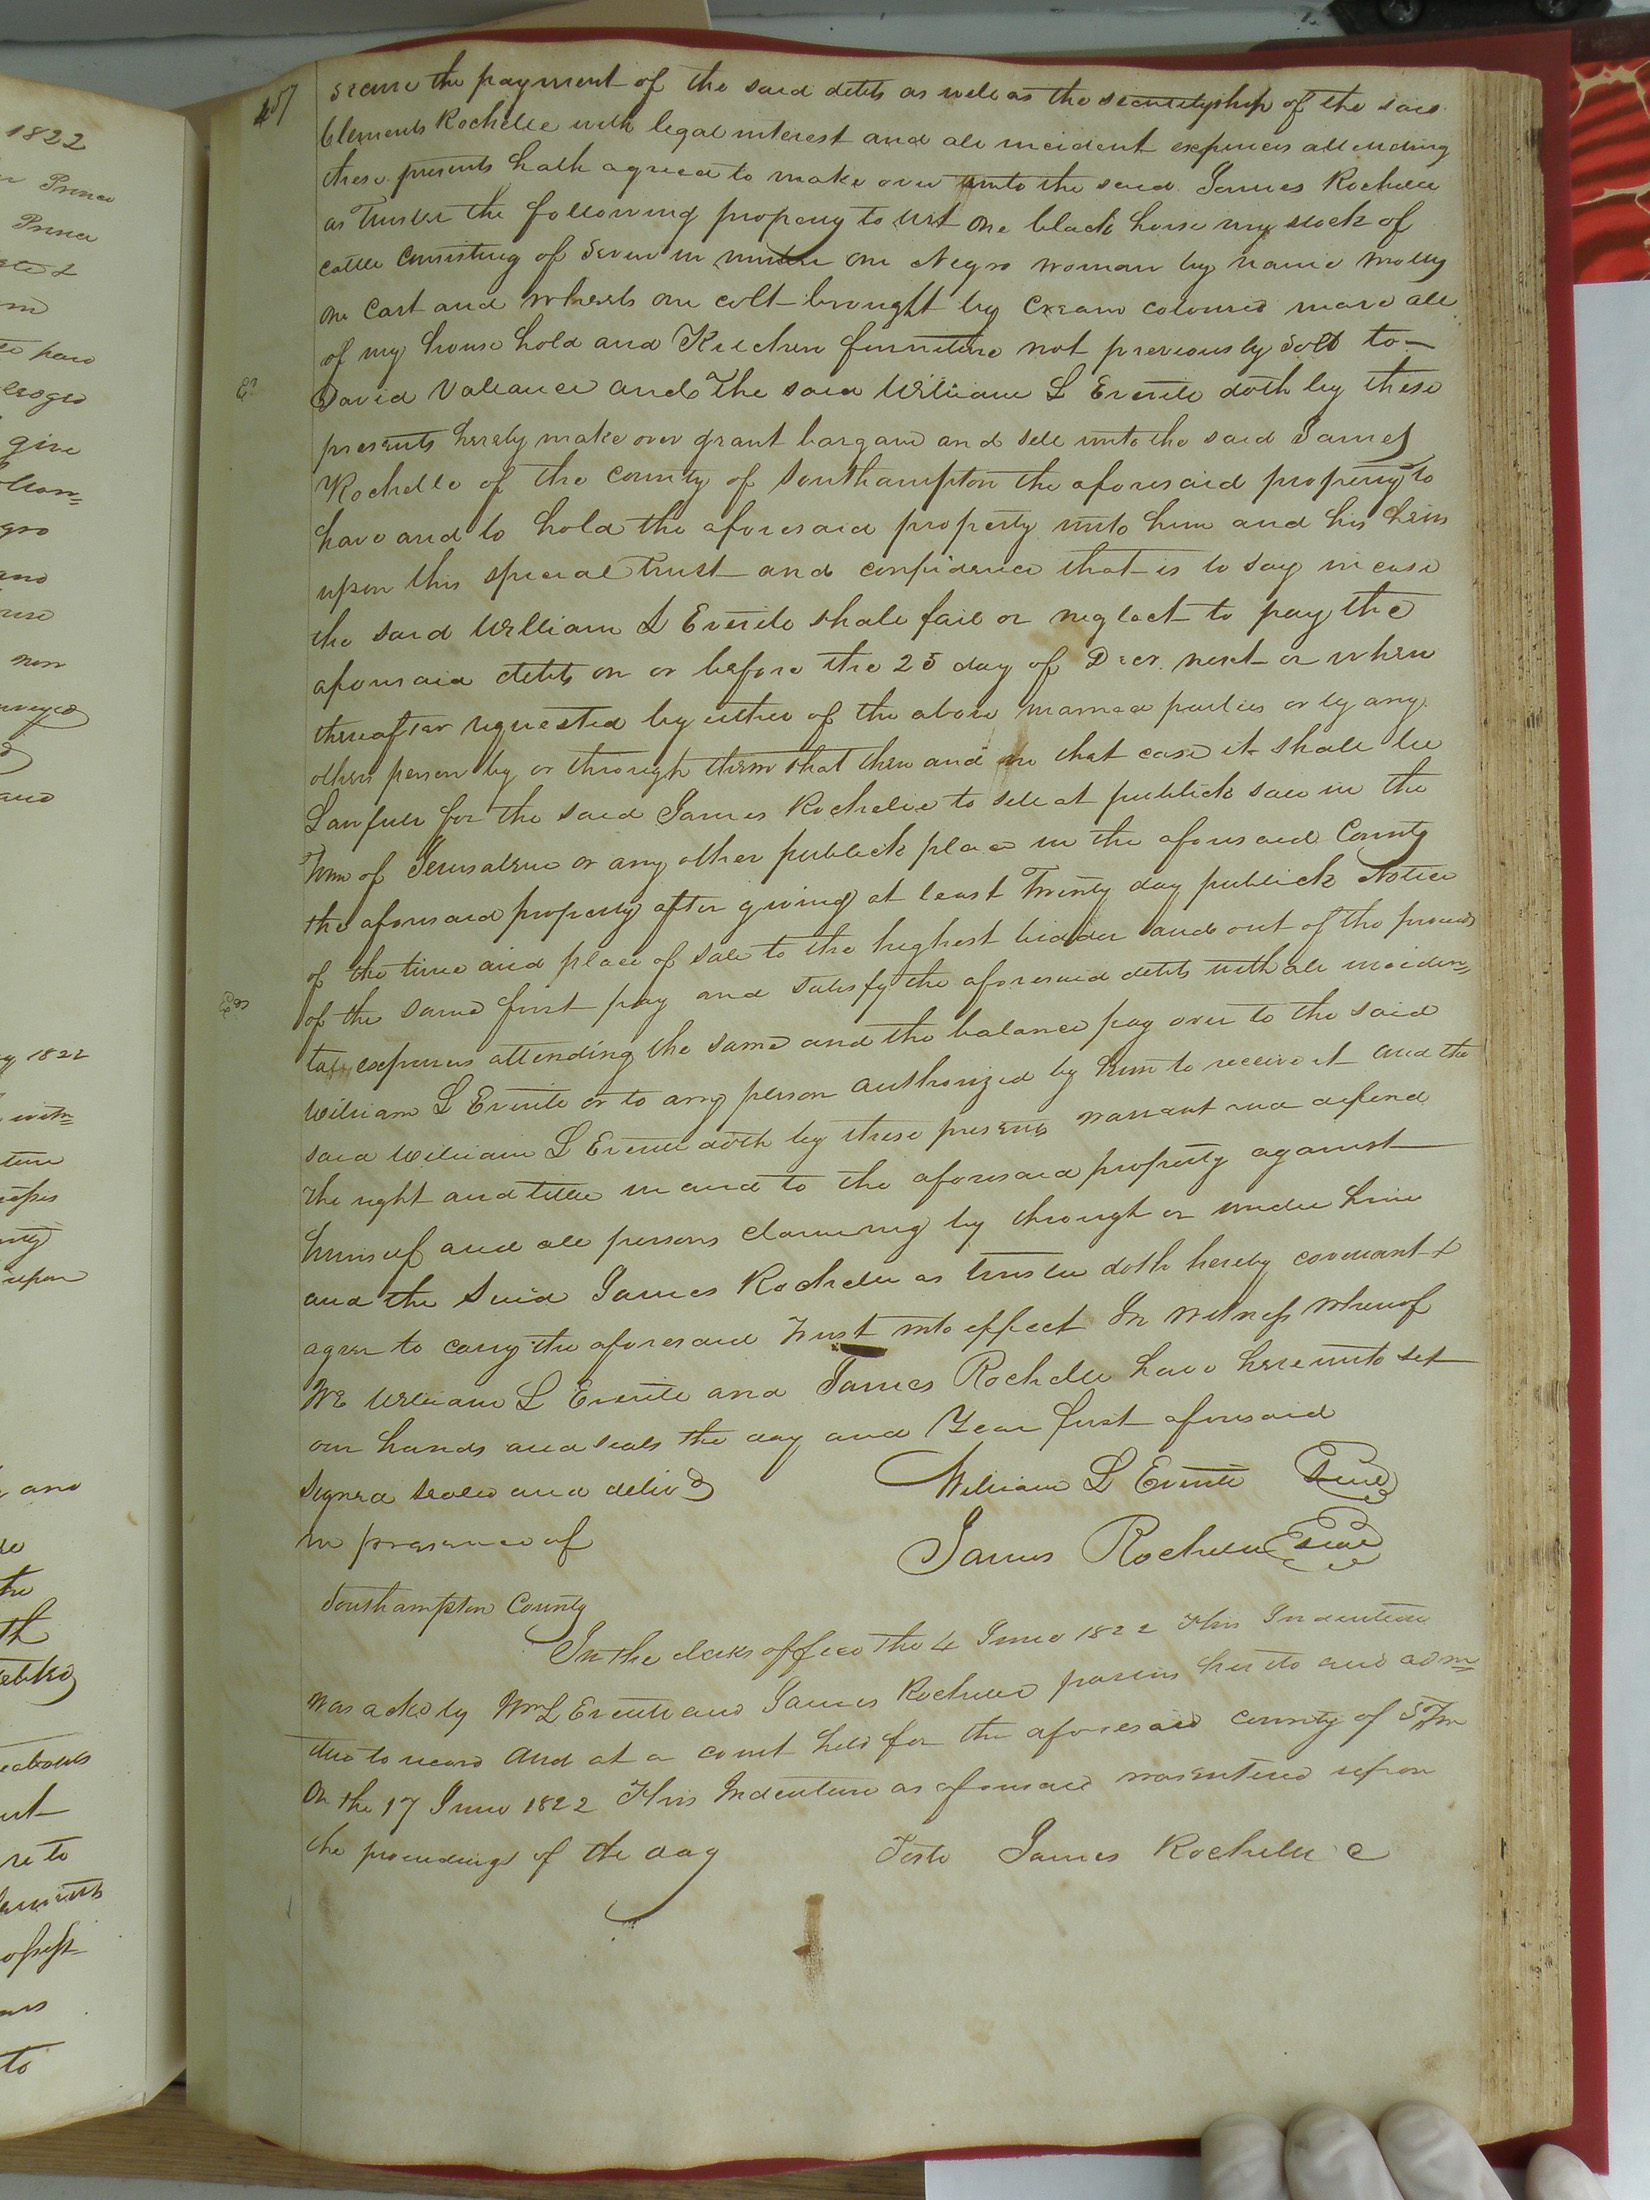 1822
Prince
Prince
give
gro
and
non
and
1822
upon
and
the
th
re to
to
457
secure the payment of the said debts as well as the securityship of the said
Clements Rochelle with legal interest and all incident expences attending
these presents hath agreed to make over unto the said James Rochelle
as Trustee the following property to wit one black horse my stock of
cattle consisting of seven in number one Negro woman by name Molly
one Cart and wheels one colt brought by Cream coloured mare all
of my house hold and Kitchen furniture not previously sold to
David Valiance and The said William L Everite doth by these
presents hereby make over grant bargain and sell unto the said James
Rochelle of the County of Southampton the aforesaid property to
have and to hold the aforesaid property unto him and his heirs
upon this special Trust and confidence that is to say in case
the said William L Everite shall fail or neglect to pay the
aforesaid debts on or before the 25 day of Decr. next or when
thereafter requested by either of the above named parties or by any
other person by or through them that then and in that case it shall be
Lawfull for the said James Rochelle to sell at publick sale in the
Town of Jerusalem or any other publick place in the aforesaid County
the aforesaid property after giving at least Twenty day publick Notice
of the time and place of sale to the highest bidder and out of the proceeds
of the same first pay and satisfy the aforesaid debts with all inciden=
tal expences attending the same and the balance pay over to the said
William L Everite or to any person authorized by him to receive it and the
said William L Everite doth by these presents warrant and defend
The right and title in and to the aforesaid property against
himself and all persons claiming by through or under him
and the said James Rochelle as trustee doth hereby covenant &
agree to carry the aforesaid Trust into effect In witness whereof
We William L Everite and James Rochelle have hereunto set
our hands and seals the day and Year first aforesaid
Signed sealed and delivd William L Everite Seal
in presence of James Rochelle Seal
Southampton County
In the clerks office the 4 June 1822 This Indenture
was ackd by Wm L Everite and James Rochelle parties hereto and adm=
itted to record And at a court held for the aforesaid county of
On the 17 June 1822 This Indenture as aforesaid was entered upon
the proceedings of the day Teste James Rochelle C